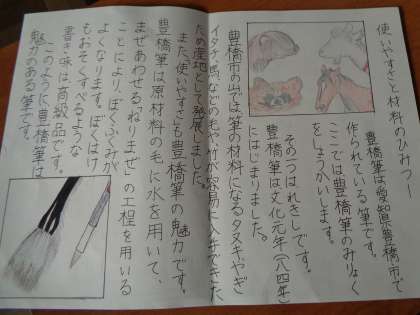 使いやすさと材料のひみつー
豊橋筆は愛知県豊橋市で
作られている筆です。
ここでは豊橋筆のみりょく
をしょうかいします。
その一つはれきしです。
豊橋筆は文化元年(一八〇四年)
にはじまりました。
豊橋市の山では筆の材料になるタヌキやぎ
イタチ、馬などの毛や、竹が容易に入手できた
ため産地として発展しました。
また、使いやすさも豊橋筆の魅力です。
豊橋筆は原材料の毛に水を用いて、
まぜあわせる「ねりまぜ」の工程を用いる
ことにより、ぼくふくみが
よくなります。ぼくはけ
もおそくすべるような
書き味は高級品です。
このように豊橋筆は
魅力のある筆です。